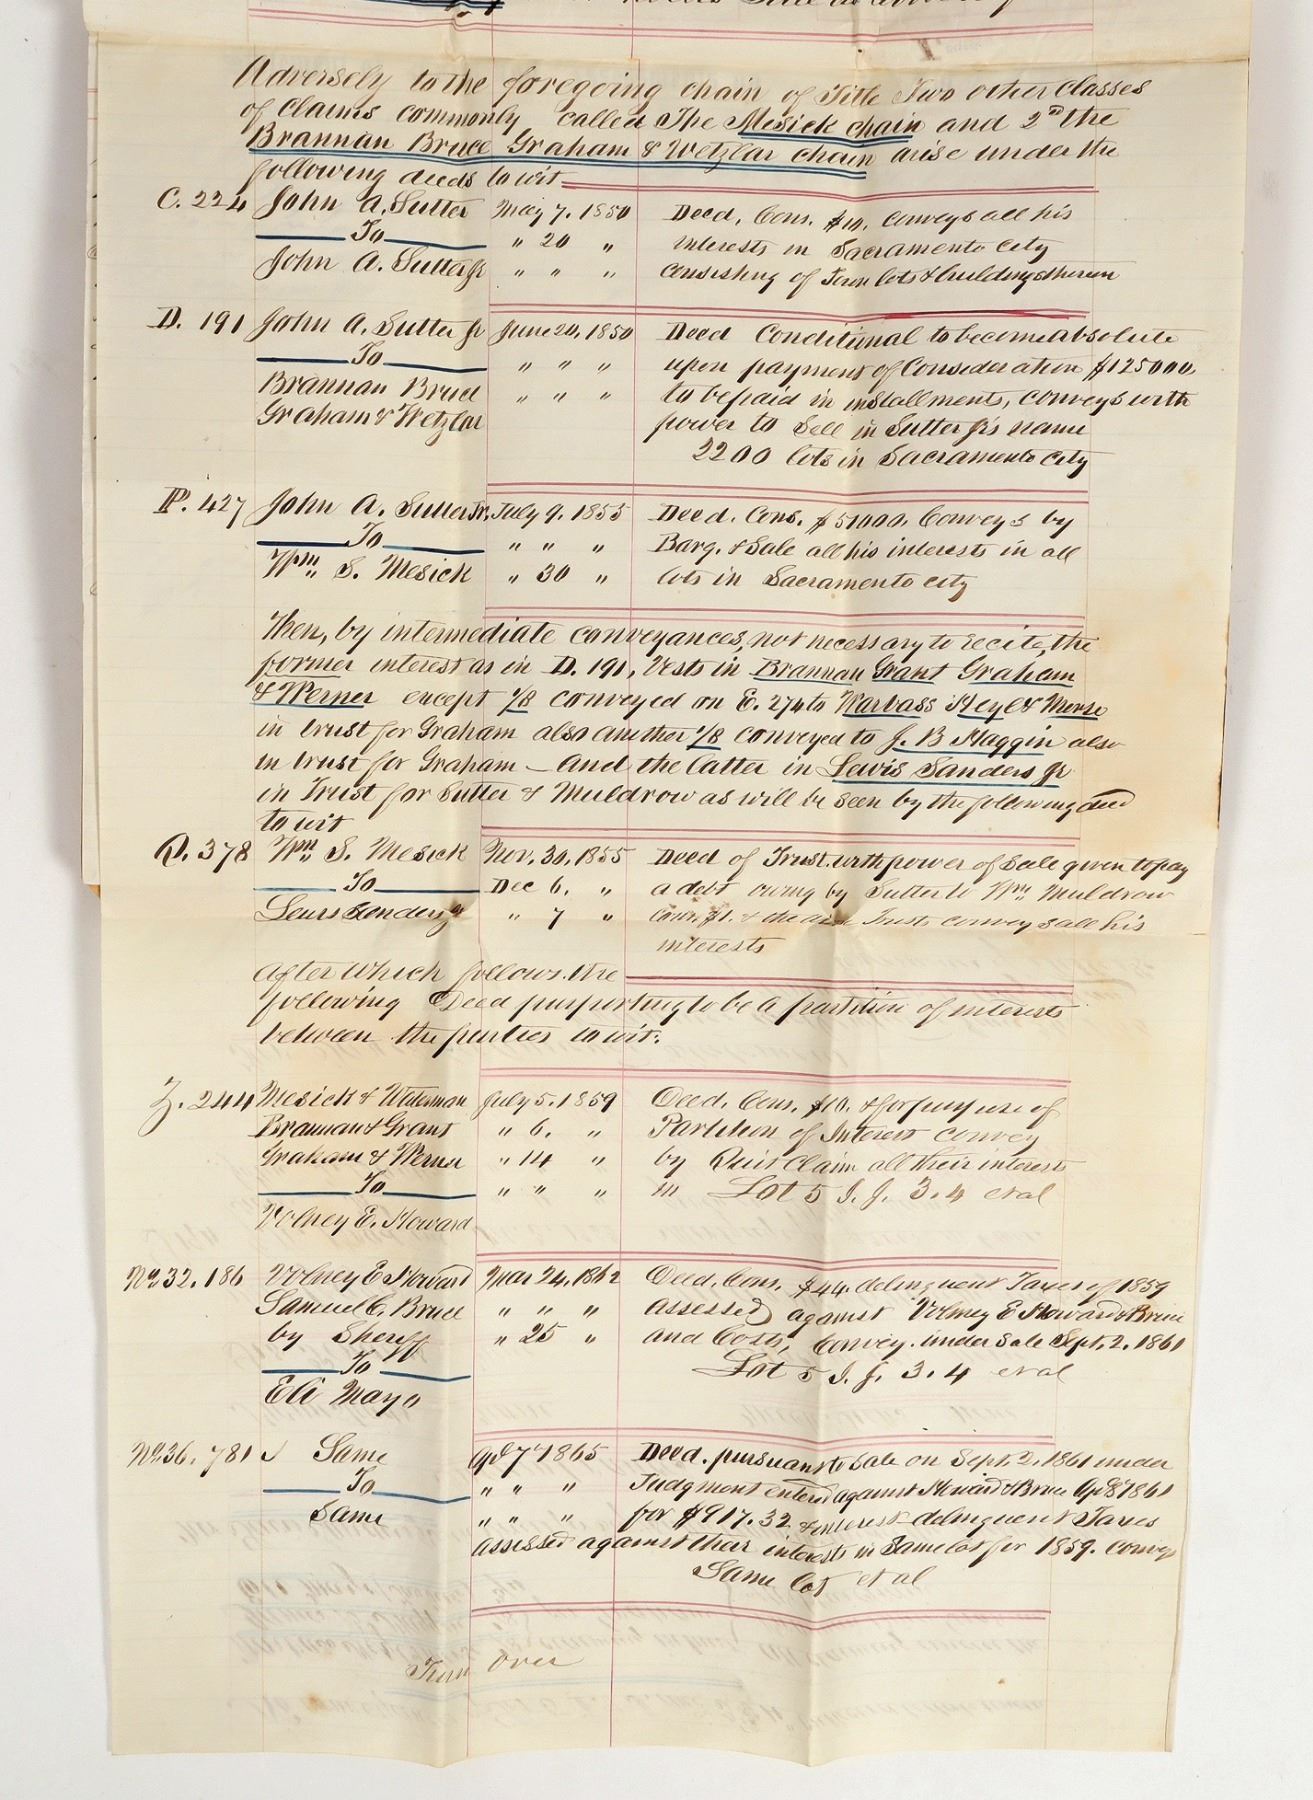 Adversely to the foregoing chain of Title Two other Classes
of Claims commonly called The Mesick chain and 2nd the
Brannan Bruce Graham & Wetzlar chain arise under the
following deeds to wit
C. 224 John A. Sutter May 7. 1850 Deed, Cons. $10. Conveys all his
To " 20 " interests in Sacramento City
John A. Sutter Jr " " " consisting of Town lots & buildings thereon
D. 191 John A. Sutter Jr June 20, 1850 Deed Conditional to become absolute
To " " " upon payment of Consideration $125000,
Brannan Bruce " " " to be paid in installments, conveys with
Graham & Wetzlar power to Sell in Sutter Jr's name
2200 lots in Sacramento City
P. 427 John A. Sutter Jr. July 9. 1855 Deed. Cons. $51000. Conveys by
To " " " Barg. & Sale all his interests in all
Wm S. Mesick " 30 " lots in Sacramento City
Then, by intermediate conveyances, not necessary to recite, the
former interest as in D. 191, Vests in Brannan Grant Graham
& Werner except 1/8 conveyed on E. 274 to Warbass Heyl & Morse
in trust for Graham also another 1/8 conveyed to J. B Haggin also
in trust for Graham — and the latter in Lewis Sanders Jr
in Trust for Sutter & Muldrow as will be seen by the following deed
to wit
Q. 378 Wm S. Mesick Nov. 30, 1855 Deed of Trust. with power of Sale given to pay
To Dec 6. " a debt owing by Sutter to Wm Muldrow
Lewis Sanders Jr " 7 " Cons. $1. & the Trust, conveys all his
interests
After which follows. the
following Deed purporting to be a partition of interests
between the parties to wit:
Z. 244 Mesick & Waterman July 5. 1859 Deed. Cons. $10. & for purpose of
Brannan & Grant " 6. " Partition of Interest convey
Graham & Werner " 14 " by Quit Claim all their interests
To " " " in Lot 5 I. J. 3. 4 et al
Volney E. Howard
No 32. 186 Volney E Howard Mar 24, 1862 Deed, Cons. $44. delinquent Taxes of 1859
Samuel C. Bruce " " " assessed against Volney E Howard & Bruce
by Sheriff " 25 " and Costs, Convey. under Sale Sept. 2. 1861
To Lot 5 I. J. 3. 4 et al
Eli Mayo
No 36. 781 Same 7 1865 Deed. pursuant to Sale on Sept. 2. 1861 under
To " " " Judgment entered against Howard & Bruce 1861
Same " " " for $917.32 & interest delinquent Taxes
assessed against their interests in Same lot for 1859. Conveys
Same lot et al
Turn Over